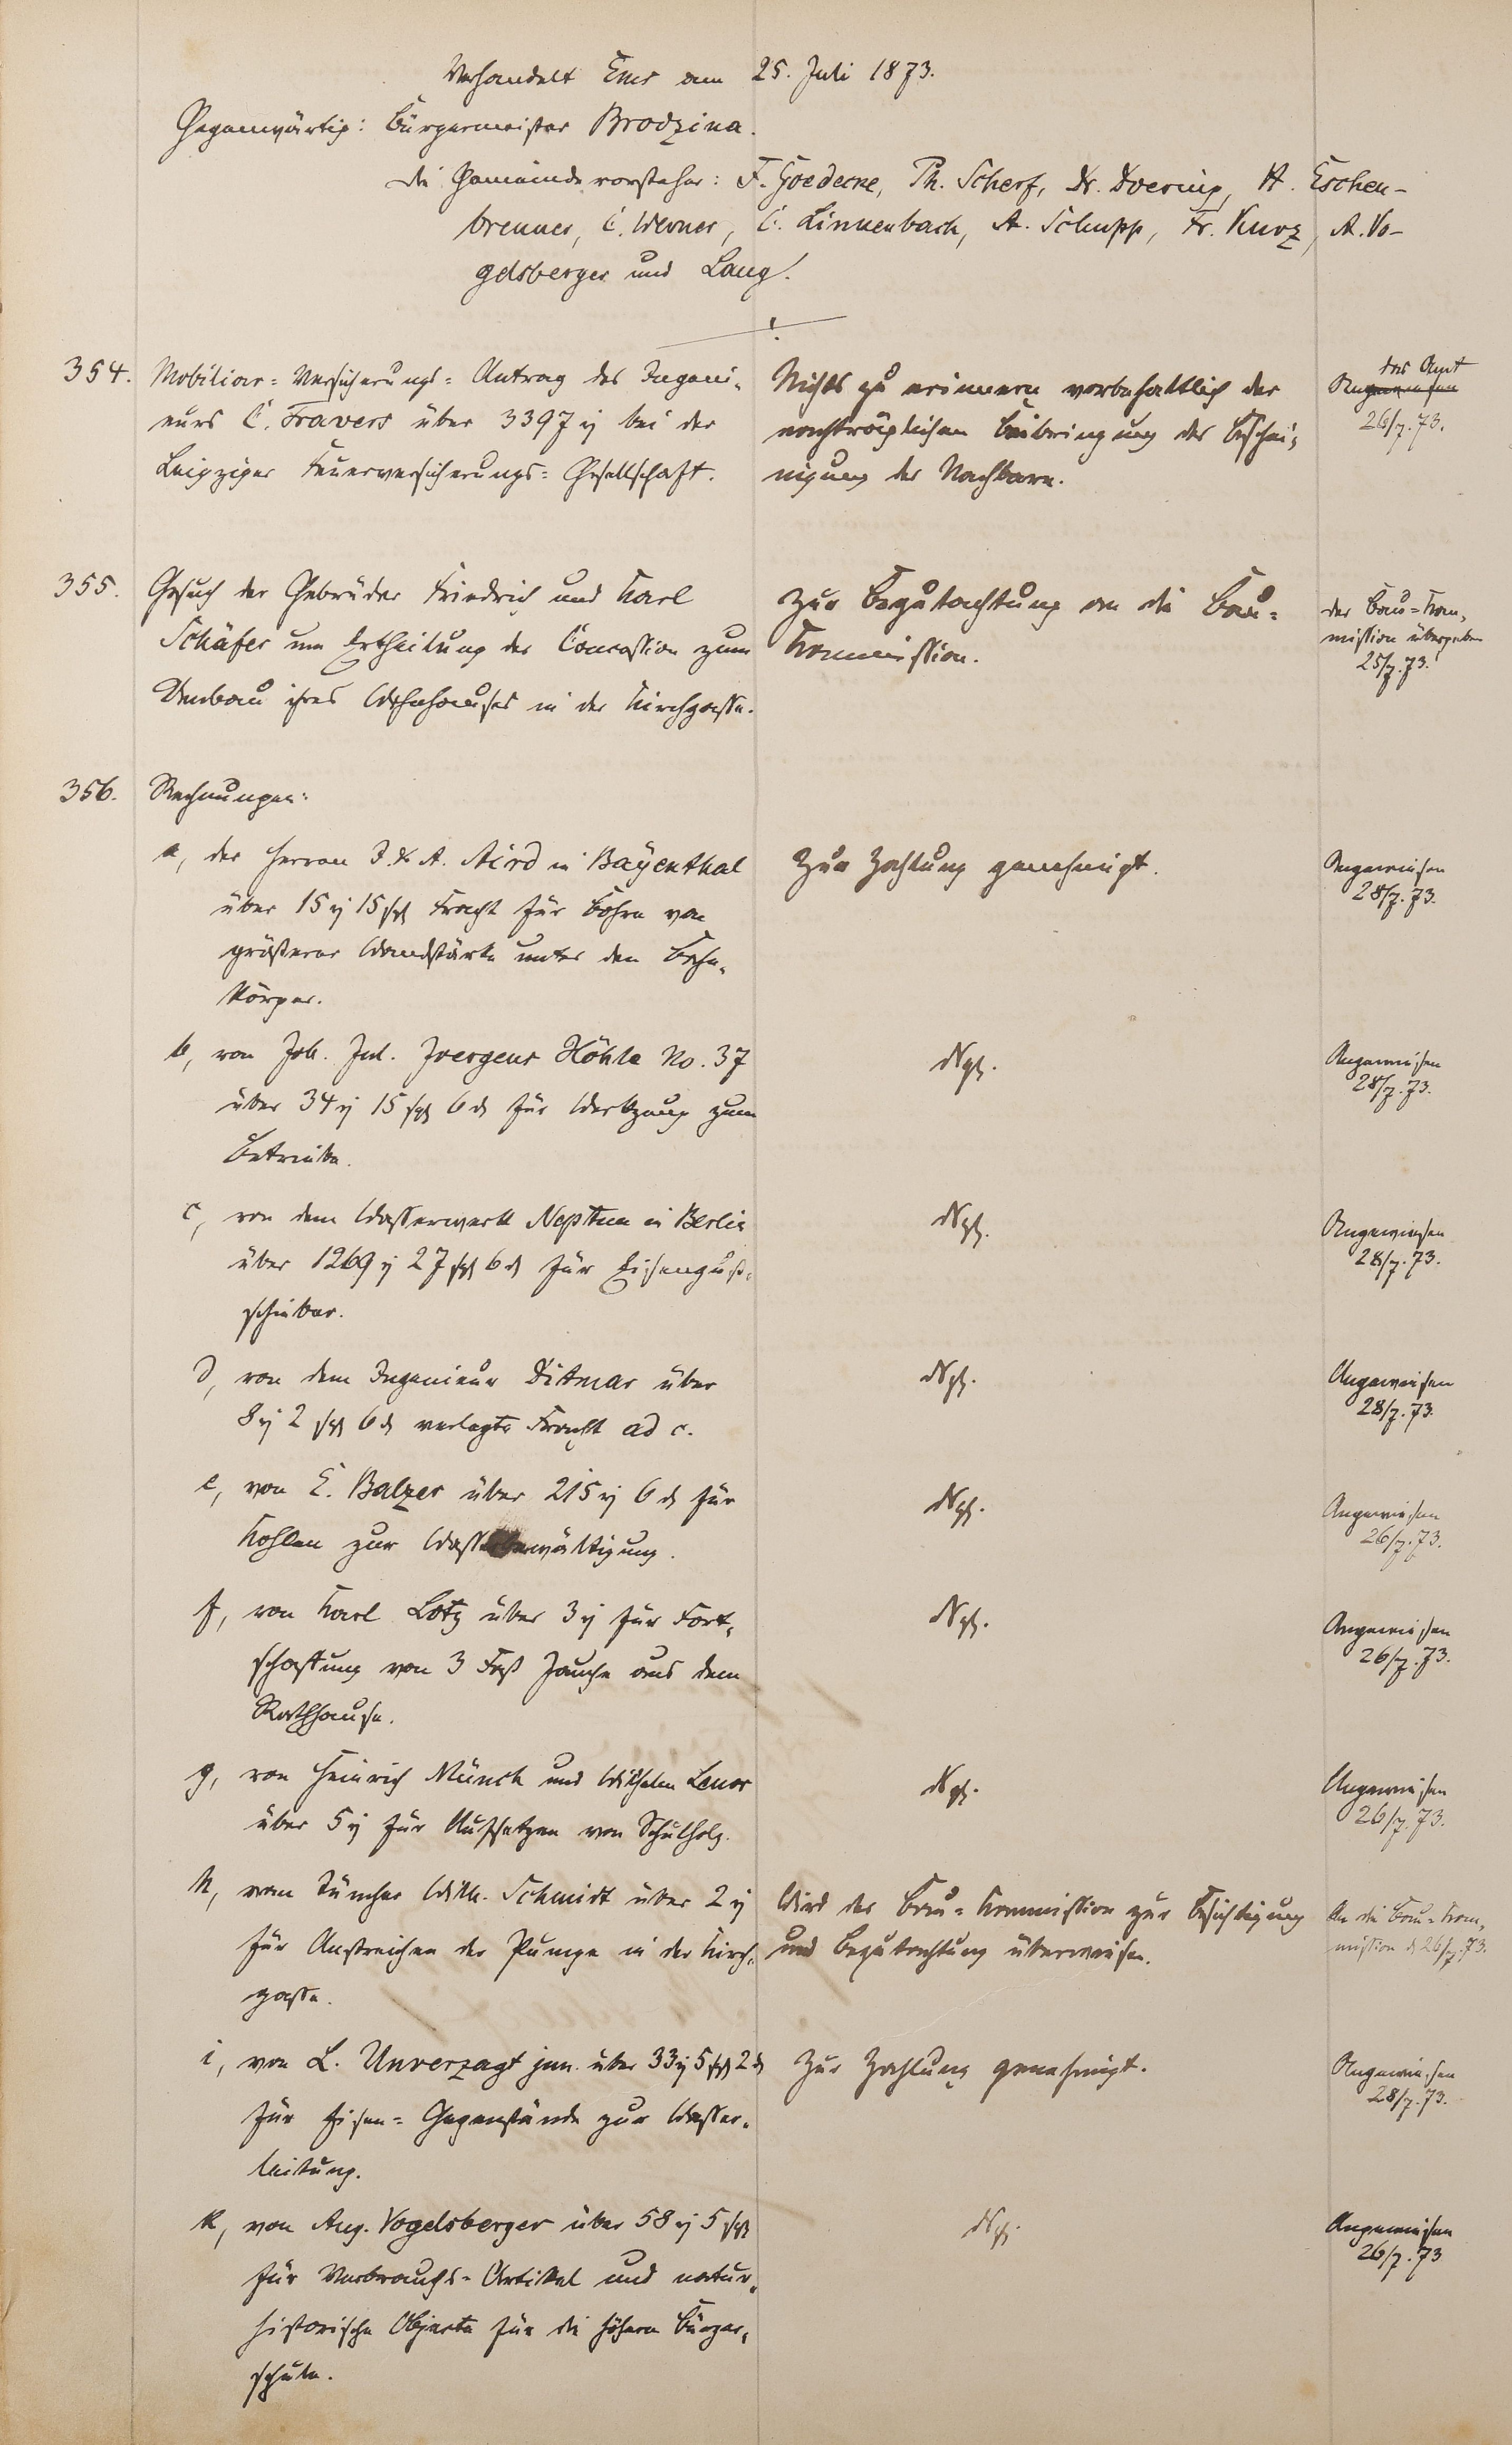 Verhandelt Ems am 25. Juli 1873.
Gegenwärtig: Bürgermeister Brodzina.
die Gemeindevorsteher: F. Goedecke, Th. Scherf, Dr. Doering, H. Eschen-
brenner, C. Werner, C. Linkenbach, A. Schupp, Fr. Kurz, A. Vo-
gelsberger und Lang.
354. Mobiliar-Versicherungs-Antrag des Ingeni-
eurs C. Travers über 3397 rt bei der
Leipziger Feuerversicherungs-Gesellschaft.
Nichts zu erinnern vorbehaltlich der
nachträglichen Beibringung der Beschei-
nigung der Nachbarn.
das Amt
26/7.73.
355. Gesuch der Gebrüder Friedrich und Karl
Schäfer um Ertheilung der Concession zum
Umbau ihres Wohnhauses in der Kirchgasse.
Zur Begutachtung an die Bau-
Kommission.
der Bau-Kom-
mission übergeben
25/7.73.
356. Rechnungen:
a, der Herren J. & A. Aird in Bayenthal
über 15 rt 15 sgr Fracht für Rohre von
größerer Wandstärke unter den Bahn-
körper.
Zur Zahlung genehmigt.
Angewiesen
28/7.73.
b, von Joh. Jul. Juergens Höhle No. 37
über 34 rt 15 sgr 6 d für Werkzeug zum
Betriebe.
Dgl.
Angewiesen
28/7.73.
c, von dem Wasserwerk Neptun in Berlin
über 1269 rt 27 sgr 6 d für Eisenguß-
schieber.
Dgl.
Angewiesen
28/7.73.
d, von dem Ingenieur Ditmar über
8 rt 2 sgr 6 d verlegte Fracht ad c.
Dgl.
Angewiesen
28/7.73.
e, von E. Balzer über 215 rt 6 d für
Kohlen zur Wasserbewältigung.
Dgl.
Angewiesen
26/7.73.
f, von Karl Lotz über 3 rt für Fort-
schaffung von 3 Faß Jauche aus dem
Rathhause.
Dgl.
Angewiesen
26/7.73.
g, von Heinrich Münch und Wilhelm Lenor
über 5 rt für Aufsetzen von Schulholz.
Dgl.
Angewiesen
26/7.73.
h, vom Tüncher Wilh. Schmidt über 2 rt
für Anstreichen der Pumpe in der Kirch-
gasse.
Wird der Bau-Kommission zur Besichtigung
und Begutachtung überwiesen.
An die Bau-Kom-
mission d 26/7.73.
i, von L. Unverzagt jun. über 33 rt 5 sgr 2 d
für Eisen-Gegenstände zur Wasser-
leitung.
Zur Zahlung genehmigt.
Angewiesen
28/7.73.
k, von Aug. Vogelsberger über 58 rt 5 sgr
für Verbrauchs-Artikel und natur-
historische Objecte für die höhere Bürger-
schule.
Dgl.
Angewiesen
26/7.73